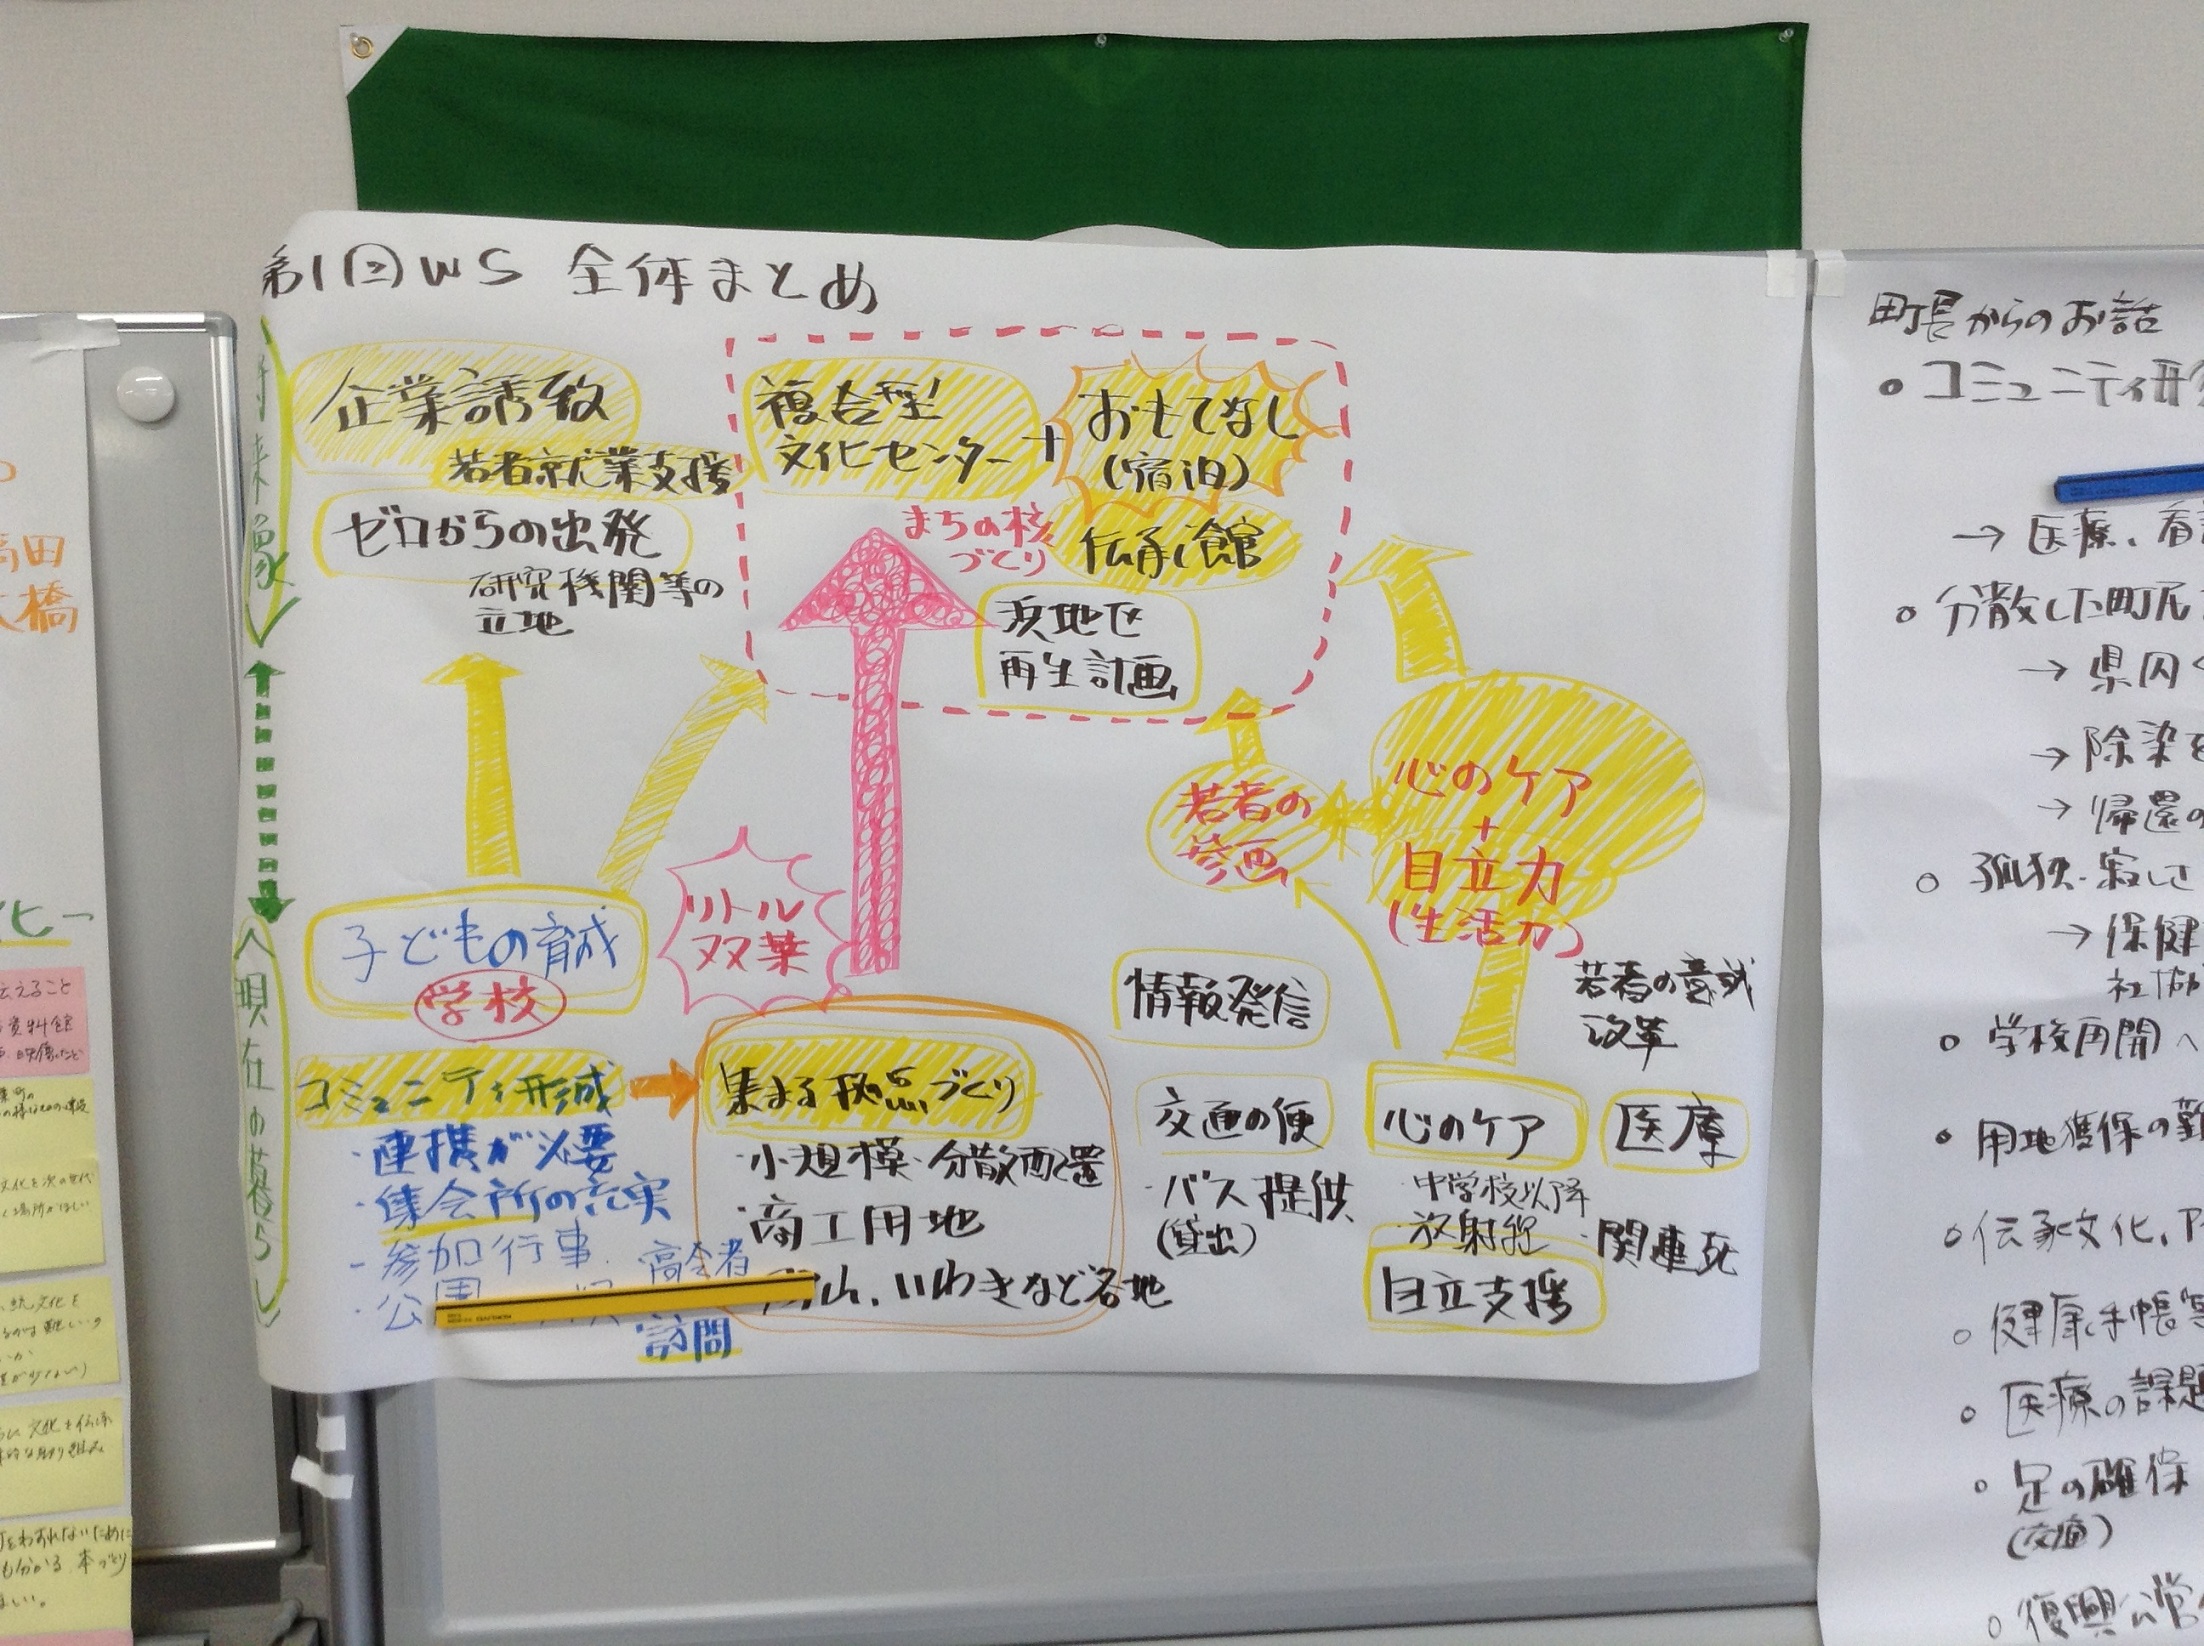 第1回WS 全体まとめ
将来像
企業誘致
若者就業支援
ゼロからの出発
研究機関等の
立地
複合型
文化センター
+
おもてなし
(宿泊)
まちの核
づくり
伝承館
浜地区
再生計画
若者の
参画
心のケア
+
自立力
(生活力)
子どもの育成
学校
リトル
双葉
現在の暮らし
コミュニティ形成
・連携が必要
・集会所の充実
・参加行事
・公園
高齢者
訪問
集まる拠点づくり
・小規模・分散配置
・商工用地
山、いわきなど各地
情報発信
交通の便
・バス提供
(貸出)
若者の意識
改革
心のケア
・中学校以降
・放射線
自立支援
医療
・関連死
町長からのお話
コミュニティ形
→ 医療、看
○ 分散した町民
→ 県内
→ 除染
→ 帰還の
○ 孤独・寂しさ
→ 保健
社協
○ 学校再開へ
・用地獲得の難
○ 伝承文化、
○ 健康手帳
○ 医療の課題
○ 足の確保
(交通)
○ 復興公営
田
橋
伝えること
資料館
文化を次の世代
場所がほしい
文化を
難しい
文化を伝承
取り組み
をわすれないために
も分かる、本づくり
ほしい。